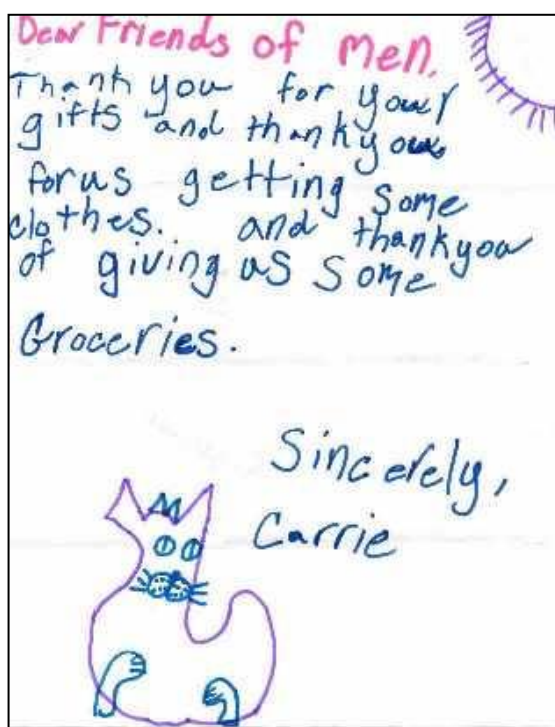 Dear Friends of men.
Thank you for your
gifts and thankyou
forus getting some
clothes. and thankyou
of giving us some
Groceries.
Sincerely,
Carrie